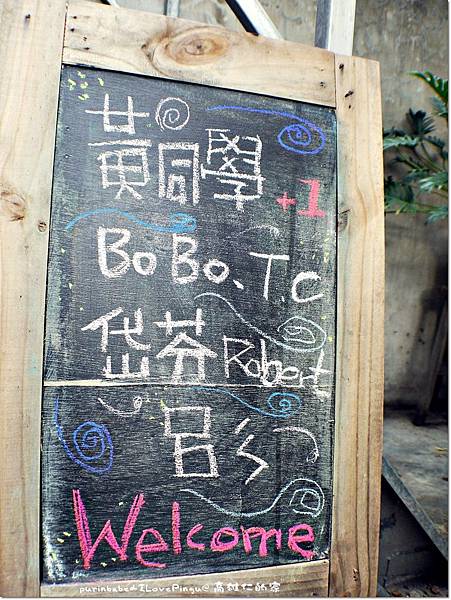 黃同學+1
BoBo、T.C
岱芬 Robert
呂彡
Welcome
purinbabe&ILovePingu@高雄仁的家